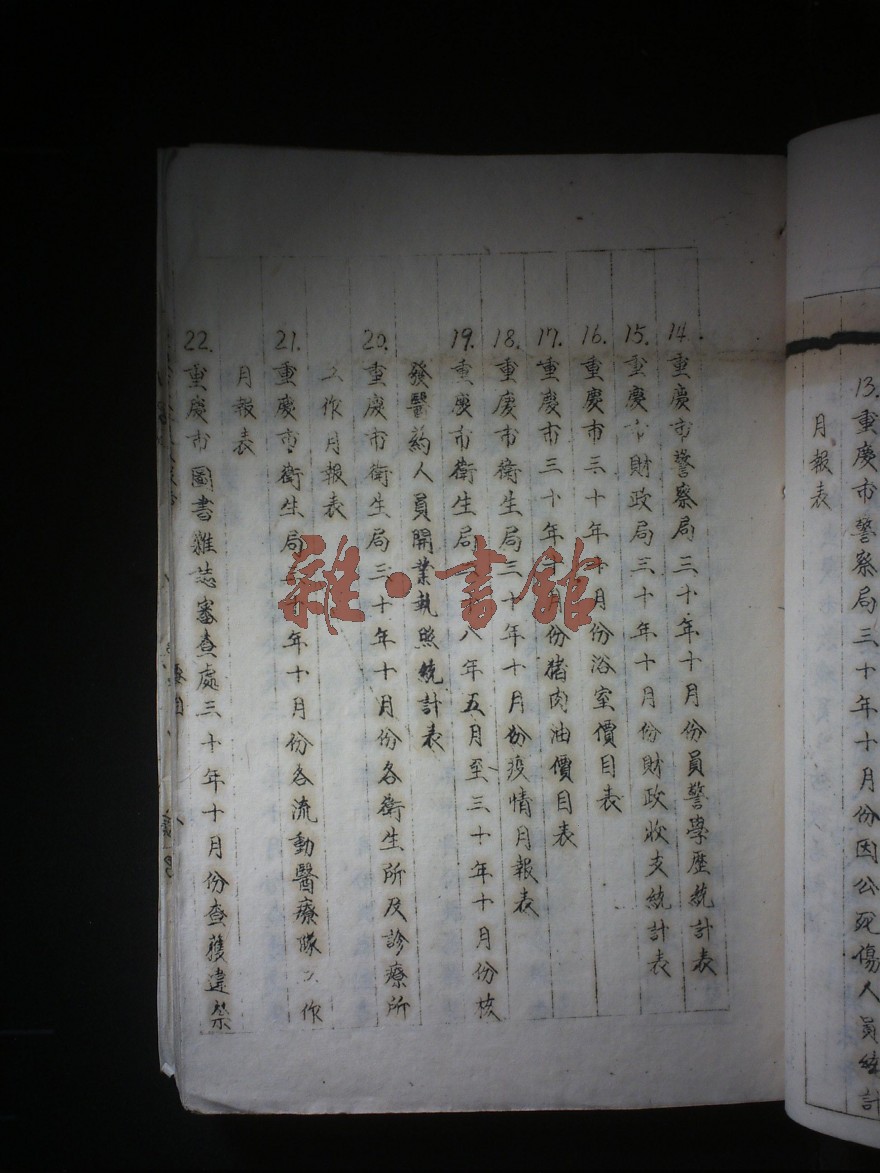 13.重慶市警察局三十年十月份因公死傷人員統計
月報表
14.重慶市警察局三十年十月份員警學歷統計表
15.重慶市財政局三十年十月份財政收支統計表
16.重慶市三十年十月份浴室價目表
17.重慶市三十年十月份猪肉油價目表
18.重慶市衛生局三十年十月份疫情月報表
19.重慶市衛生局八年五月至三十年十月份核
發醫药人員開業執照統計表
20.重慶市衛生局三十年十月份各衛生所及診療所
工作月報表
21.重慶市衛生局三十年十月份各流動醫療隊工作
月報表
22.重慶市圖書雜誌審查處三十年十月份查獲違禁
雜·書館